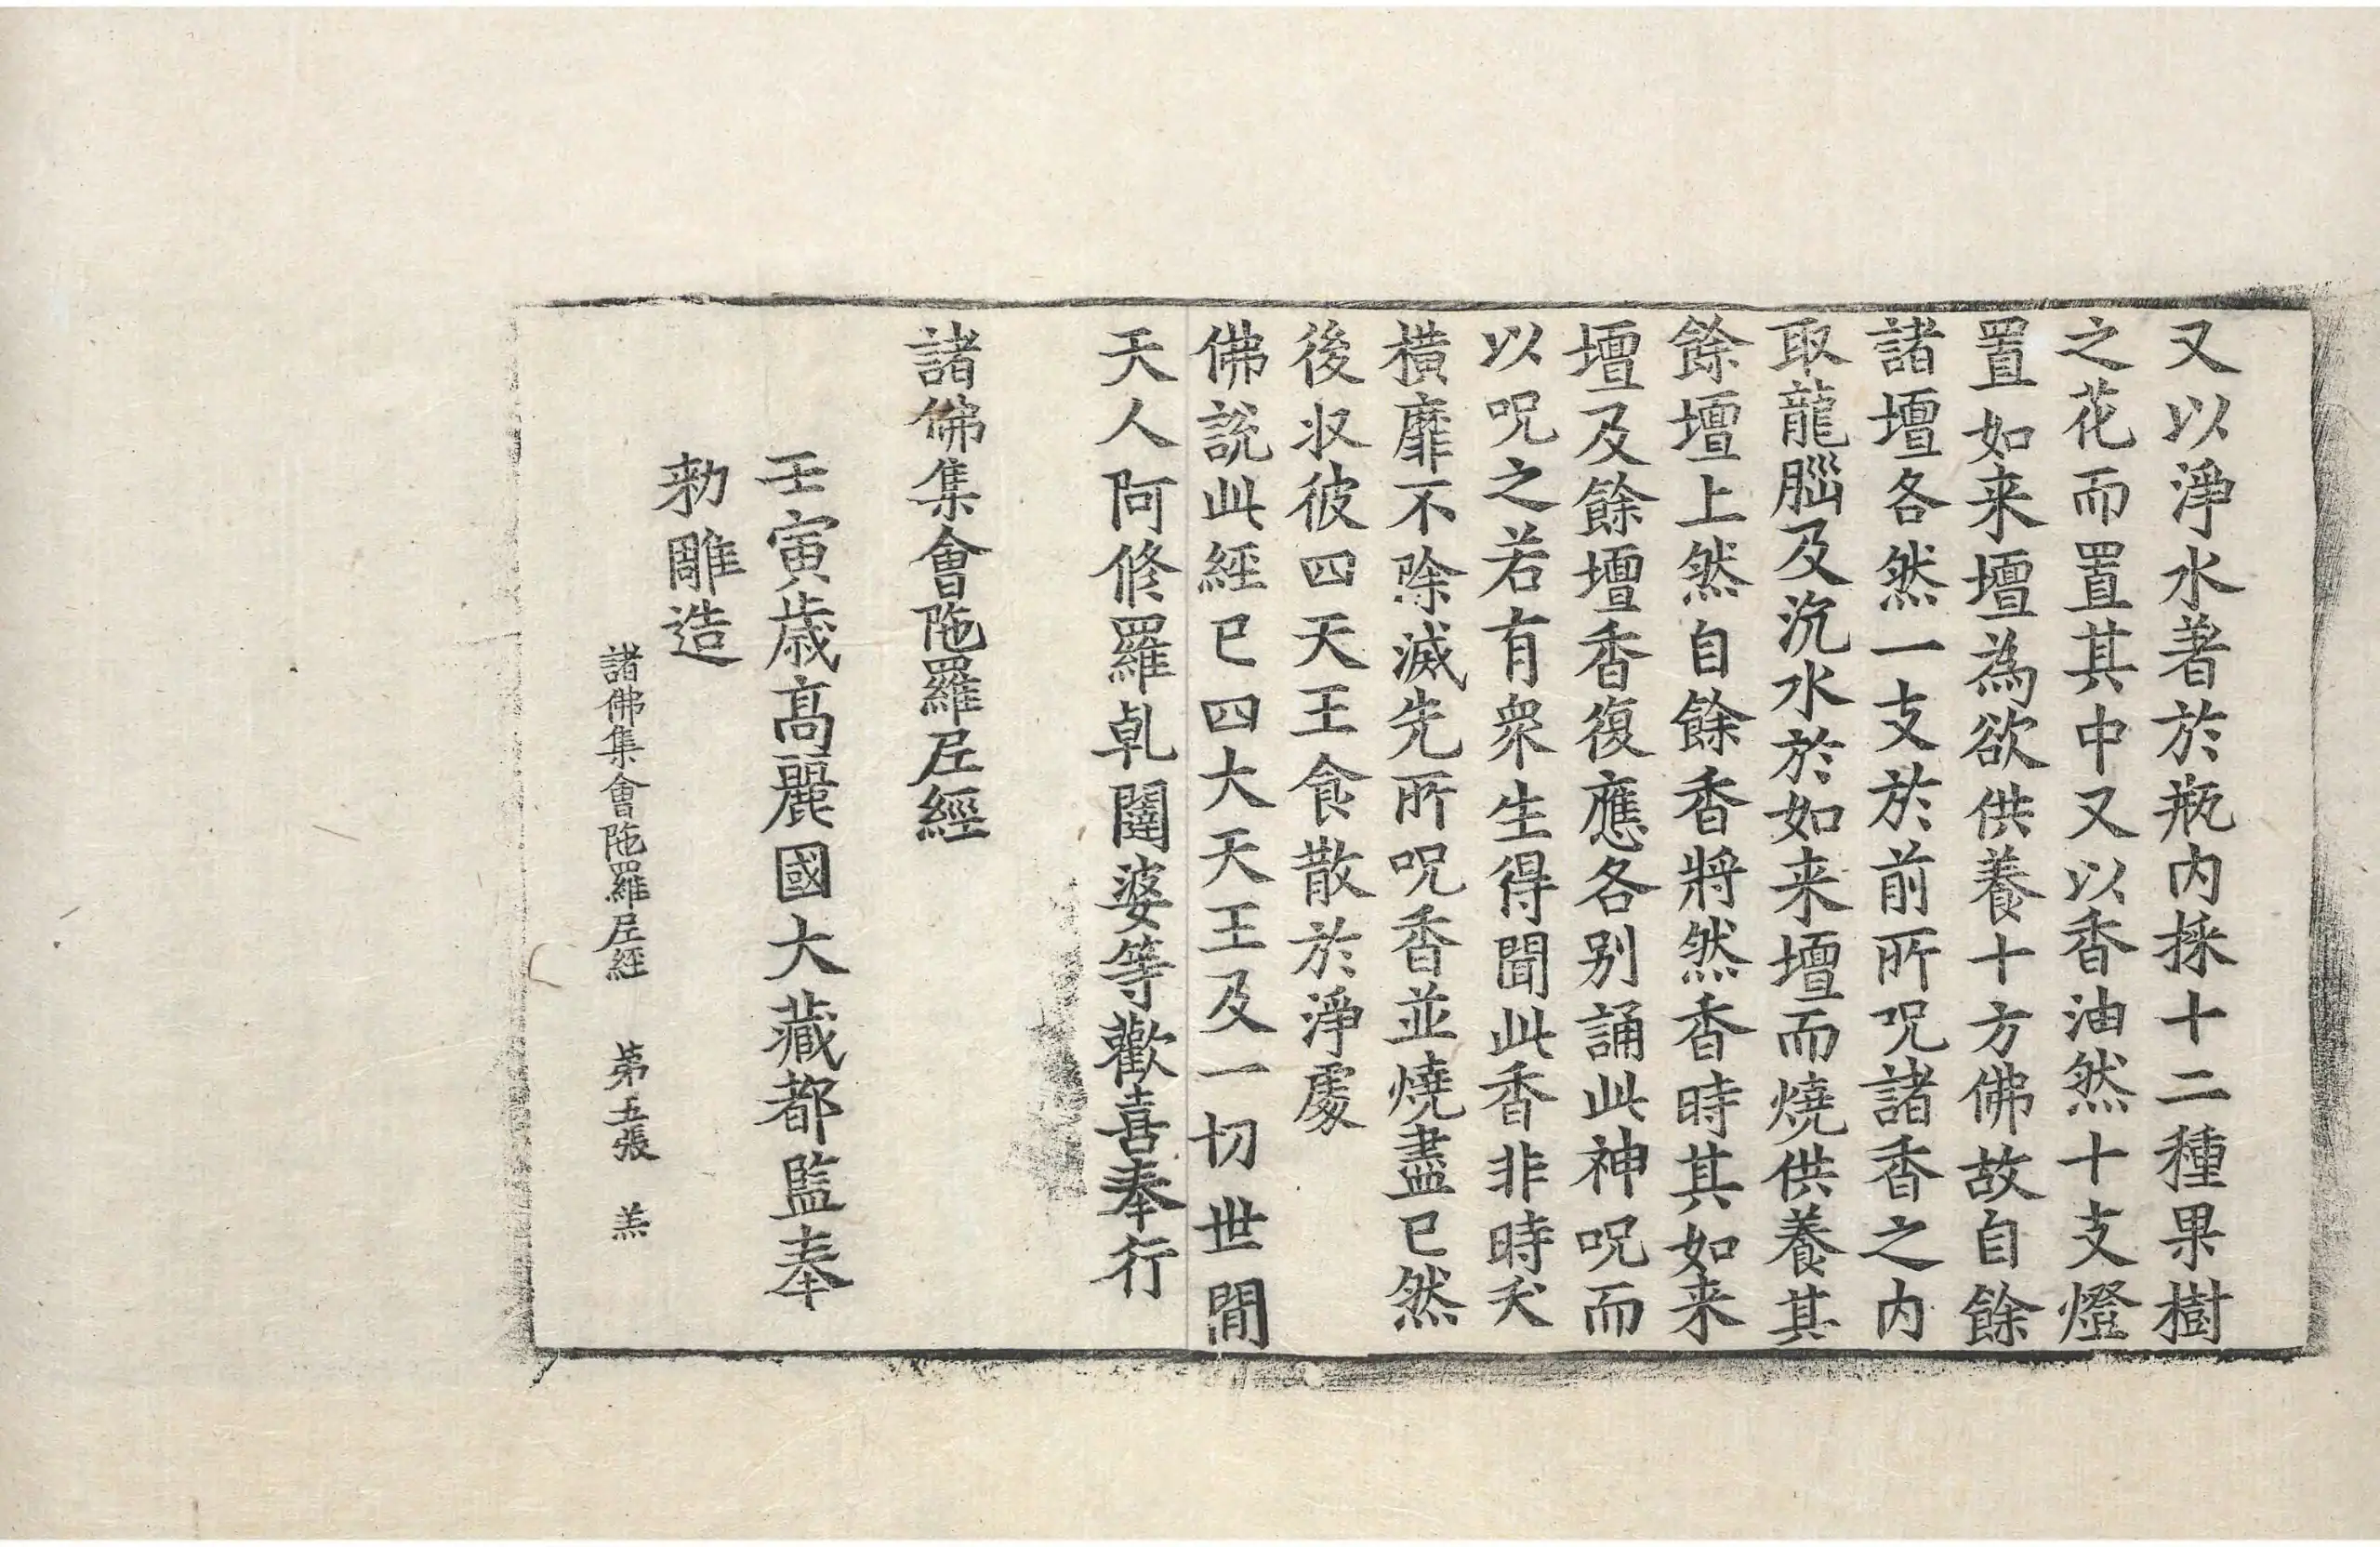 又以淨水著於瓶内採十二種果樹
之花而置其中又以香油然十支燈
置如来壇為欲供養十方佛故自餘
諸壇各然一支於前所呪諸香之内
取龍腦及沉水於如来壇而燒供養其
餘壇上然自餘香將然香時其如来
壇及餘壇香復應各别誦此神呪而
以呪之若有衆生得聞此香非時夭
橫靡不除滅先所呪香並燒盡已然
後收彼四天王食散於淨處
佛說此經已四大天王及一切世間
天人阿修羅乹闥婆等歡喜奉行
諸佛集會陁羅尼經
壬寅歲髙麗國大藏都監奉
勑雕造
諸佛集會陁羅尼經 第五張 羔